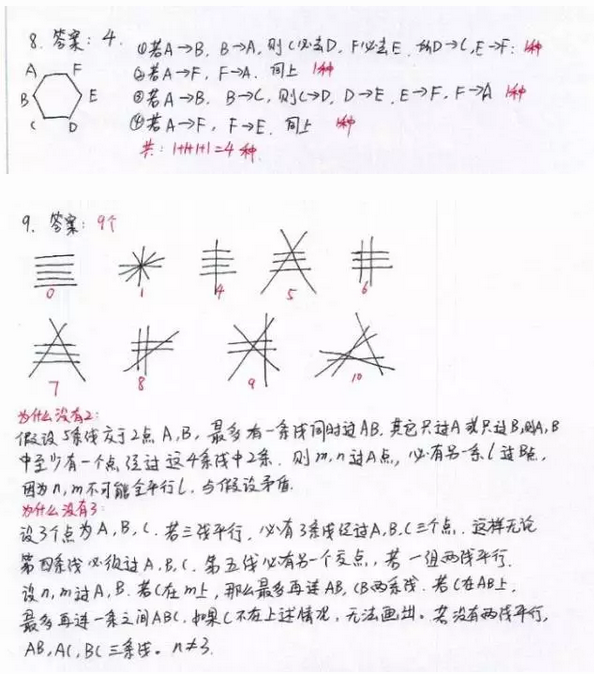 8. 答案: 4.
①若A→B, B→A, 则C必去D, F必去E. 所D→C, E→F: 1种
②若A→F, F→A. 同上 1种
③若A→B. B→C, 则C→D, D→E. E→F, F→A 1种
④若A→F, F→E. 同上 1种
共: 1+1+1+1=4种.
A F
B E
C D
9. 答案: 9个
0 1 4 5 6
7 8 9 10
为什么没有2:
假设5条线交于2点A,B, 最多有一条线同时过AB. 其它只过A或只过B,则A,B
中至少有一个点经过这4条线中2条. 则m,n过A点, 必有另一条l过B点,
因为n,m不可能全平行l. 与假设矛盾.
为什么没有3:
设3个点为A,B,C. 若三线平行, 必有3条线经过A,B,C三个点. 这样无论
第四条线必须过A,B,C. 第五线必有另一个交点, 若一组两线平行.
设n,m过A,B. 若C在m上, 那么最多再连AB, CB两条线. 若C在AB上,
最多再连一条之间ABC. 如果C不在上述情况, 无法画出。若没有两线平行,
AB, AC, BC三条线。n≠3.